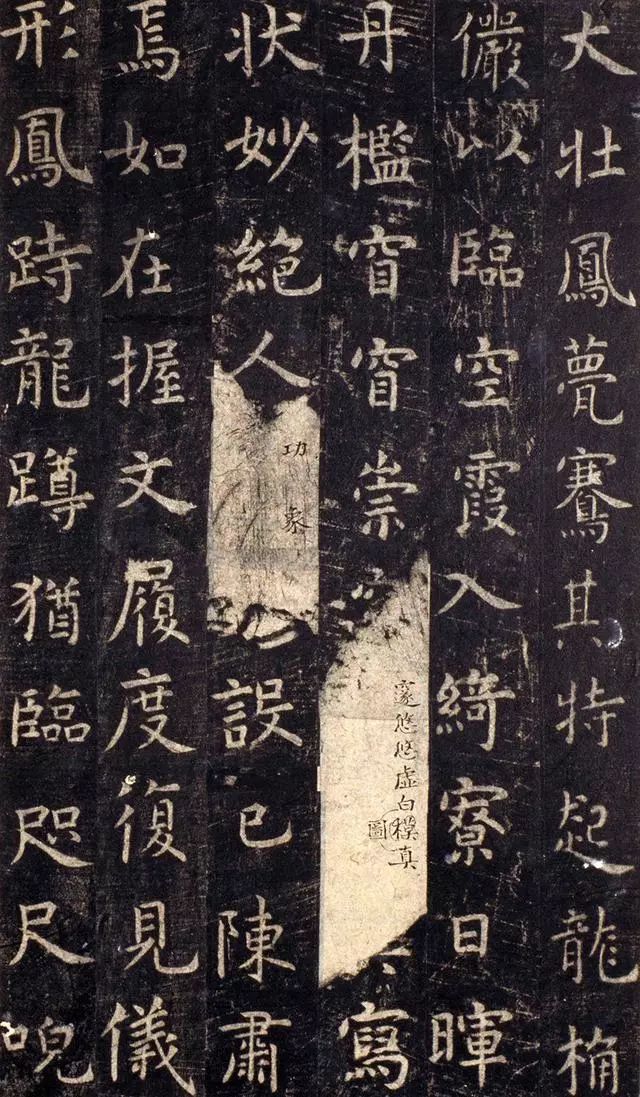 大壯鳳甍騫其特起龍桷
儼以臨空霞入綺寮日暉
丹檻窅窅崇
邃悠悠虛白模真
圖
寫
狀妙絕人
功象
設已陳肅
焉如在握文履度復見儀
形鳳跱龍蹲猶臨咫尺